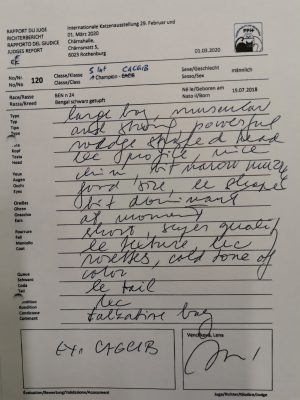 RAPPORT DU JUGE
RICHTERBERICHT
RAPPORTO DEL GIUDICE
JUDGES REPORT
Internationale Katzenausstellung 29. Februar und
01. März 2020
Chärnshalle,
Chärnsmatt 5,
6023 Rothenburg
PPH
01.03.2020
No/Nr. 120
No/No
Classe/Klasse 5 Int CACGIB
Class/Classe Champion
Sexe/Geschlecht männlich
Sesso/Sex
Race/Rasse BEN n 24
Razza/Breed Bengal schwarz getupft
Né le/Geboren am 19.07.2018
Nato il/Born
Type
Typ
Tipo
Type
large boy, muscular
and strong, powerful
Tête
Kopf
Testa
Head
wedge shaped head
lec profile, nice
chin, bit narrow muzzle
Yeux
Augen
Occhi
Eyes
good size, le shape
Oreilles
Ohren
Orecchie
Ears
bit dominant
at moment
Fourrure
Fell
Mantello
Coat
short, super quality
le texture, lec
rosettes, cold tone of
color
Queue
Schwanz
Coda
Tail
le tail
Condition
Kondition
Condizione
Condition
lec
Comment
talkative boy
Ex1 CAGCIB
Vendlkova, Lena
Évaluation/Bewertung/Validazione/Assessment
Juge/Richter/Giudice/Judge